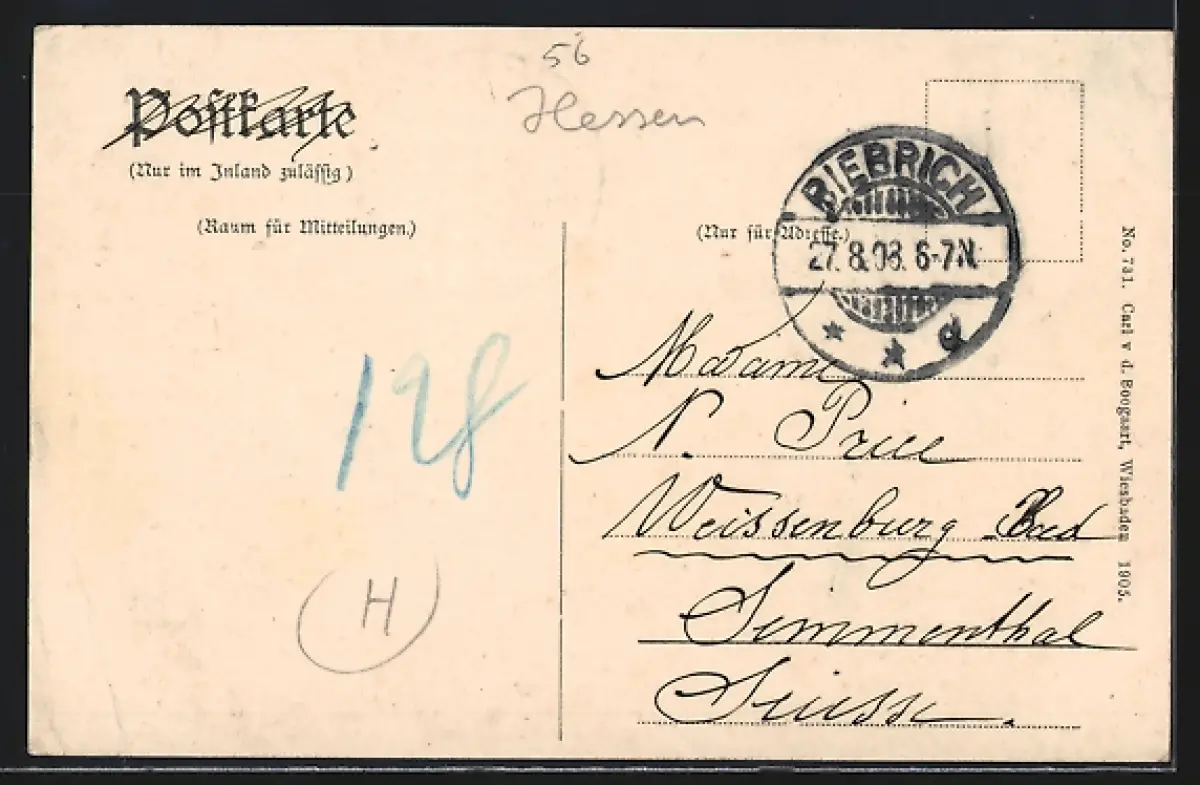 56
Hessen
Postkarte
(Nur im Inland zulässig)
(Raum für Mitteilungen.)
(Nur für Adresse.)
BIEBRICH
27.8.08. 6-7N.
* * d
128
H
Madame
N. Price
Weissenburg Bad
Simmenthal
Suisse.
No. 731. Carl v d. Boogaart, Wiesbaden 1905.